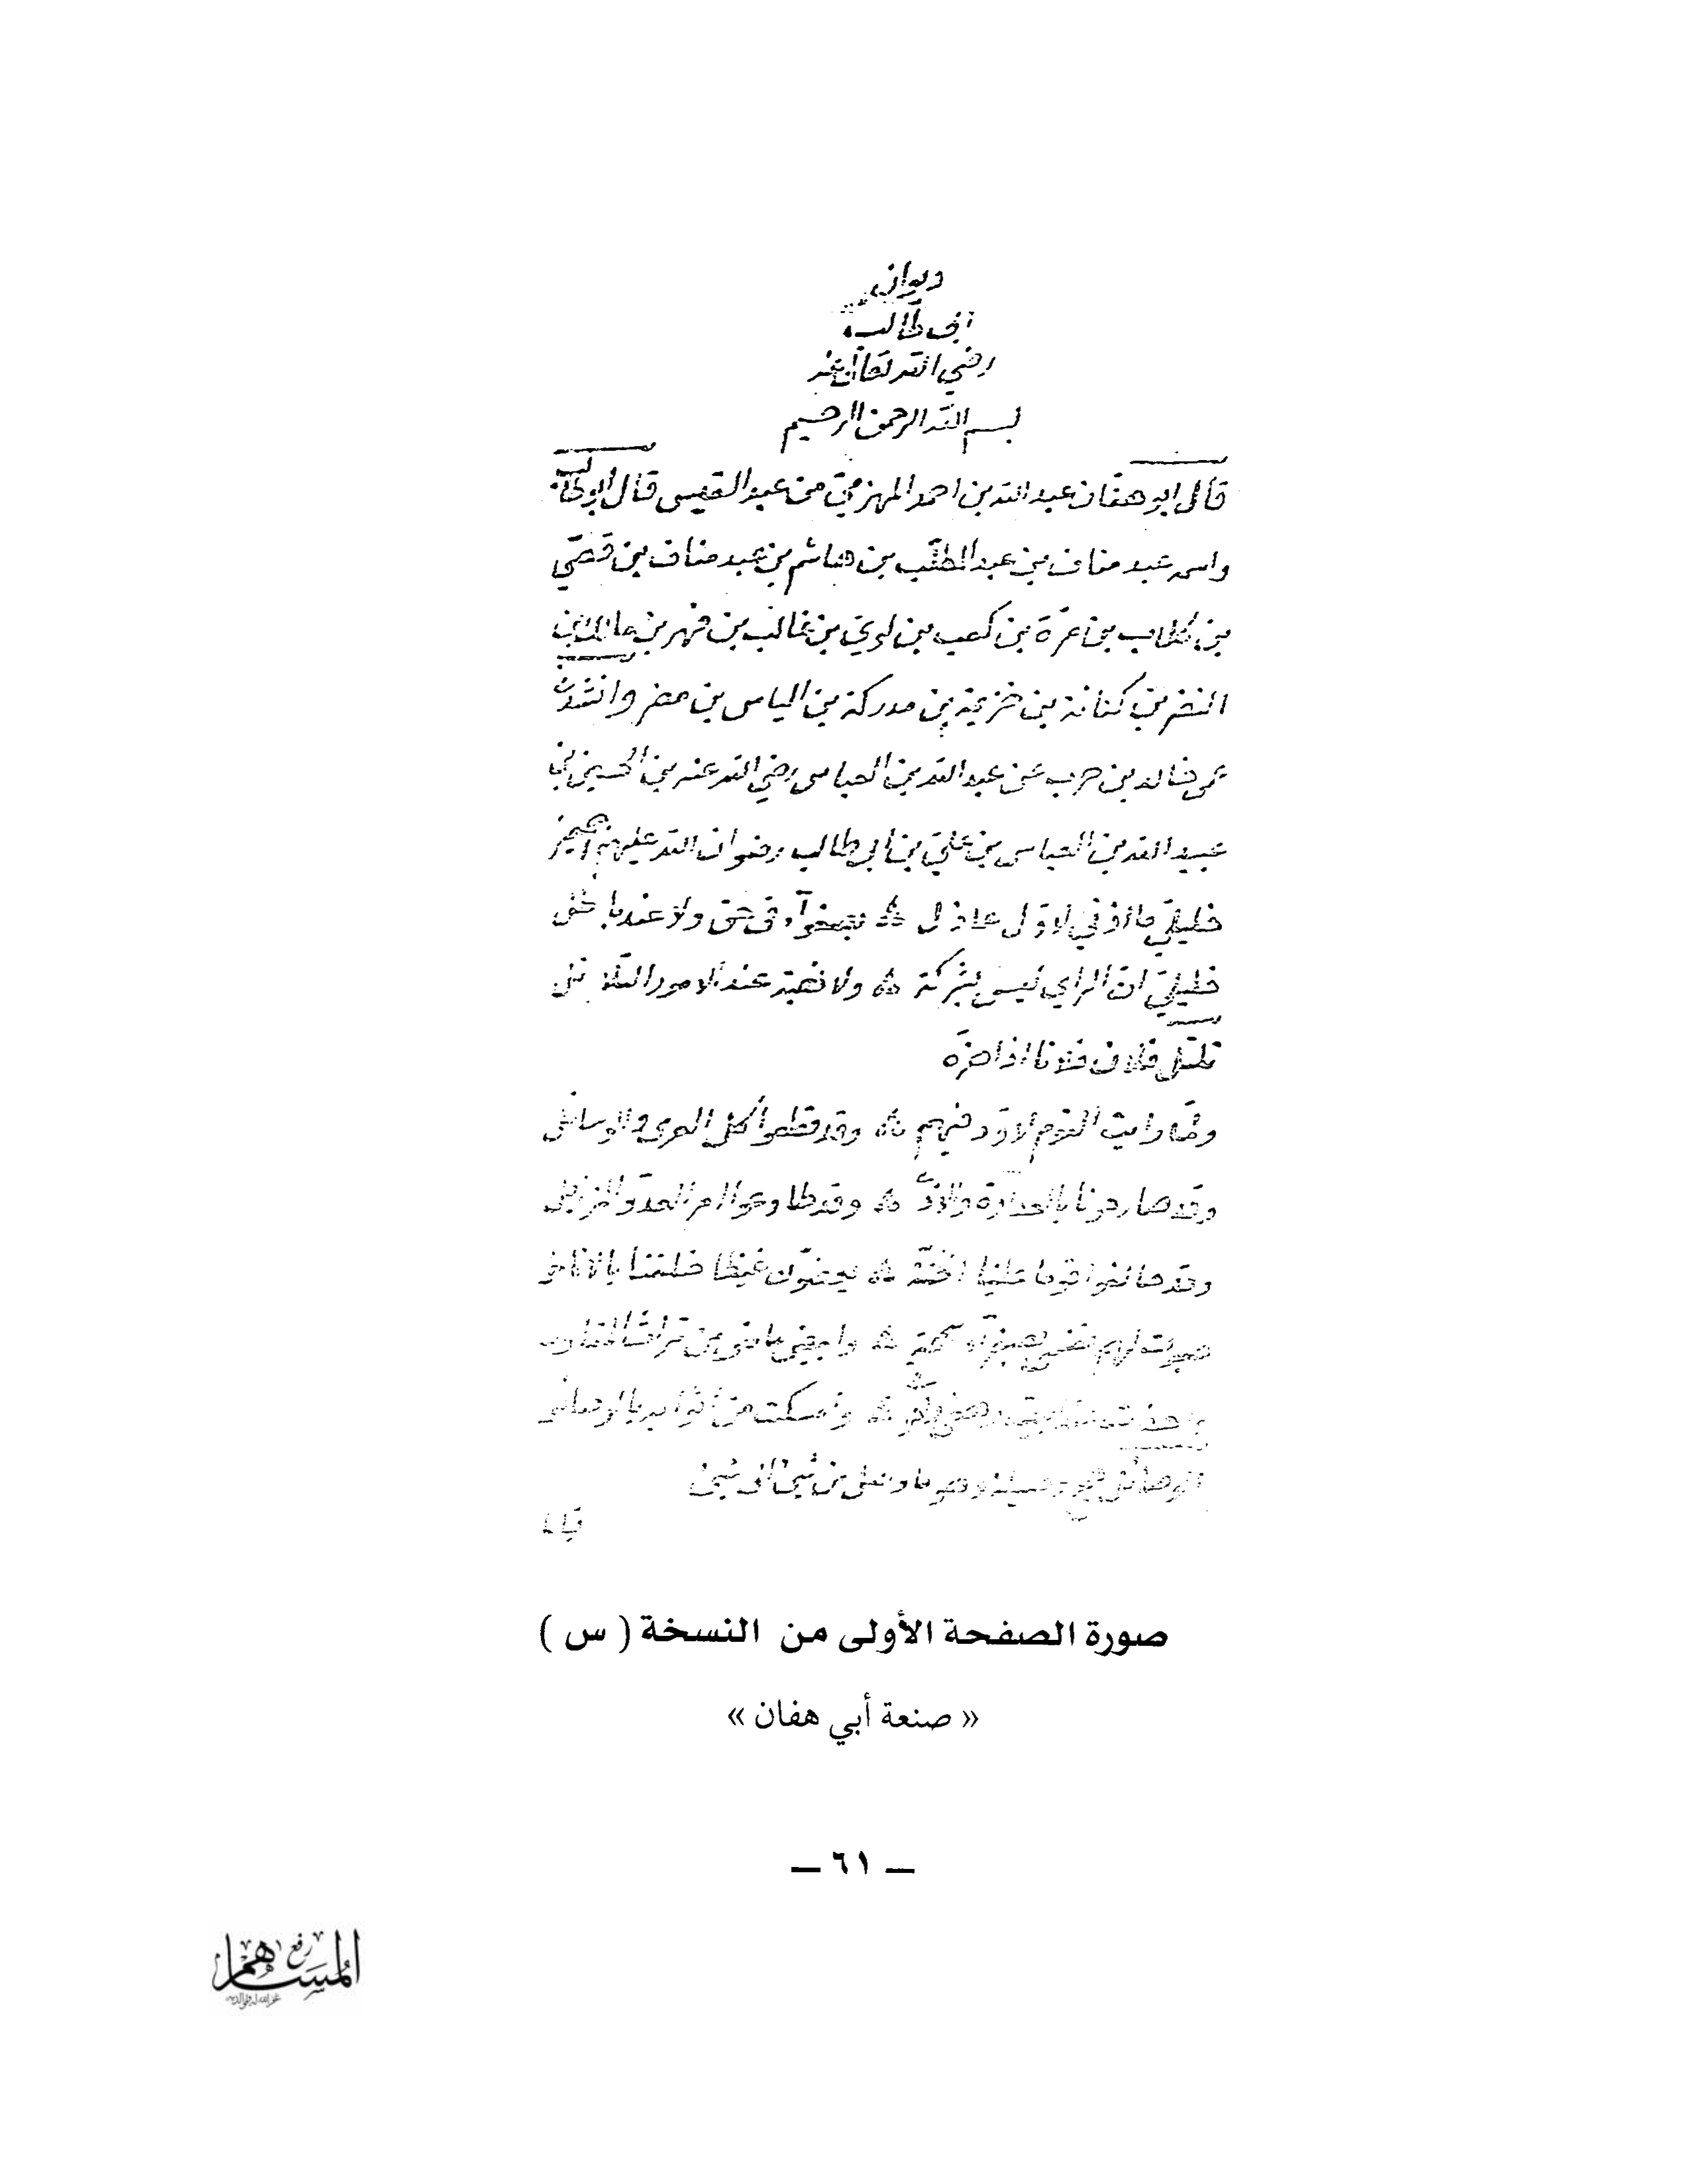 ديوان
ابي طالب
رضي الله تعالى عنه
بسم الله الرحمن الرحيم
قال ابو هفان عبد الله بن احمد المهزمي من عبد القيس قال ابو طالب
واسمه عبد مناف بن عبد المطلب بن هاشم بن عبد مناف بن قصي
بن كلاب بن مرة بن كعب بن لوي بن غالب بن فهر بن مالك بن
النضر بن كنانة بن خزيمة بن مدركة بن الياس بن مضر وانشدنيها
عمي خالد بن حرب عن عبد الله بن العباس رضي الله عنه بن الحسين بن
عبيد الله بن العباس بن علي بن ابي طالب رضوان الله عليهم اجمعين
خليلي ما اذني لاول عاذل بصغوآء في حق ولا عند باطل
خليلي ان الراي ليس بشركة ولا نهنه عند الامور التلاتل
تلتل فلان فلانا اذا هزه
ولما رايت القوم لا ود فيهم وقد قطعوا كل العرى والوسائل
وقد صارحونا بالعداوة والاذى وقد طاوعوا امر العدو المزايل
وقد حالفوا قوما علينا اظنة يعضون غيظا خلفنا بالانامل
صبرت لهم نفسي بصفرآء سمحة وابيض ماض من تراث المقاول
واحضرت عند البيت رهطي واخوتي وامسكت من اثوابه بالوصائل
الوصائل جمع وصيلة وهو ما وصل من شيئ الى شيئ
قياما
صورة الصفحة الأولى من النسخة ( س )
« صنعة أبي هفان »
— ٦١ —
رفع
المساهم
غفر الله له ولوالديه